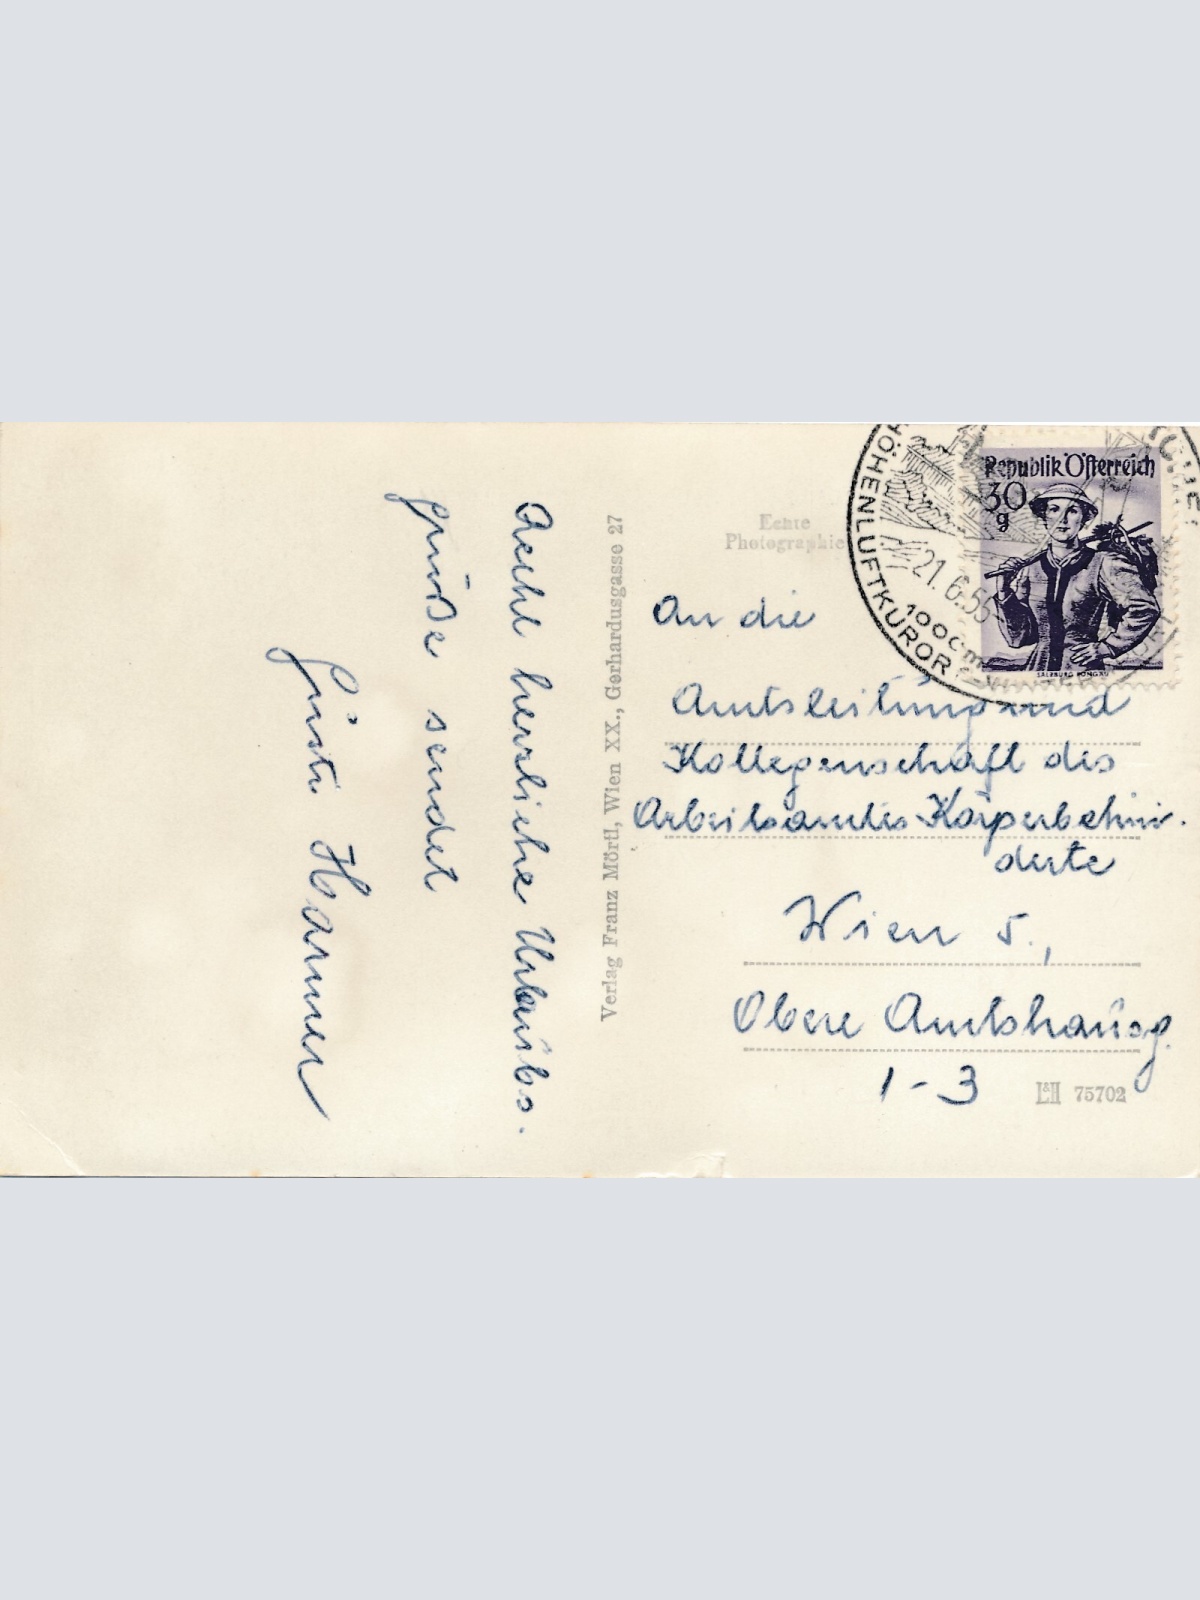 Recht herzliche Urlaubs-
grüße sendet
Hanner
Verlag Franz Mörtl, Wien XX., Gerhardusgasse 27
Echte
Photographie
HÖHENLUFTKURORT
1000 m
21.6.55
Republik Österreich
30
g
SALZBURG PONGAU
An die
Amtsleitung und
Kollegenschaft des
Arbeitsamtes Körperbehin-
derte
Wien 5.,
Obere Amtshausg.
1-3
L&H 75702